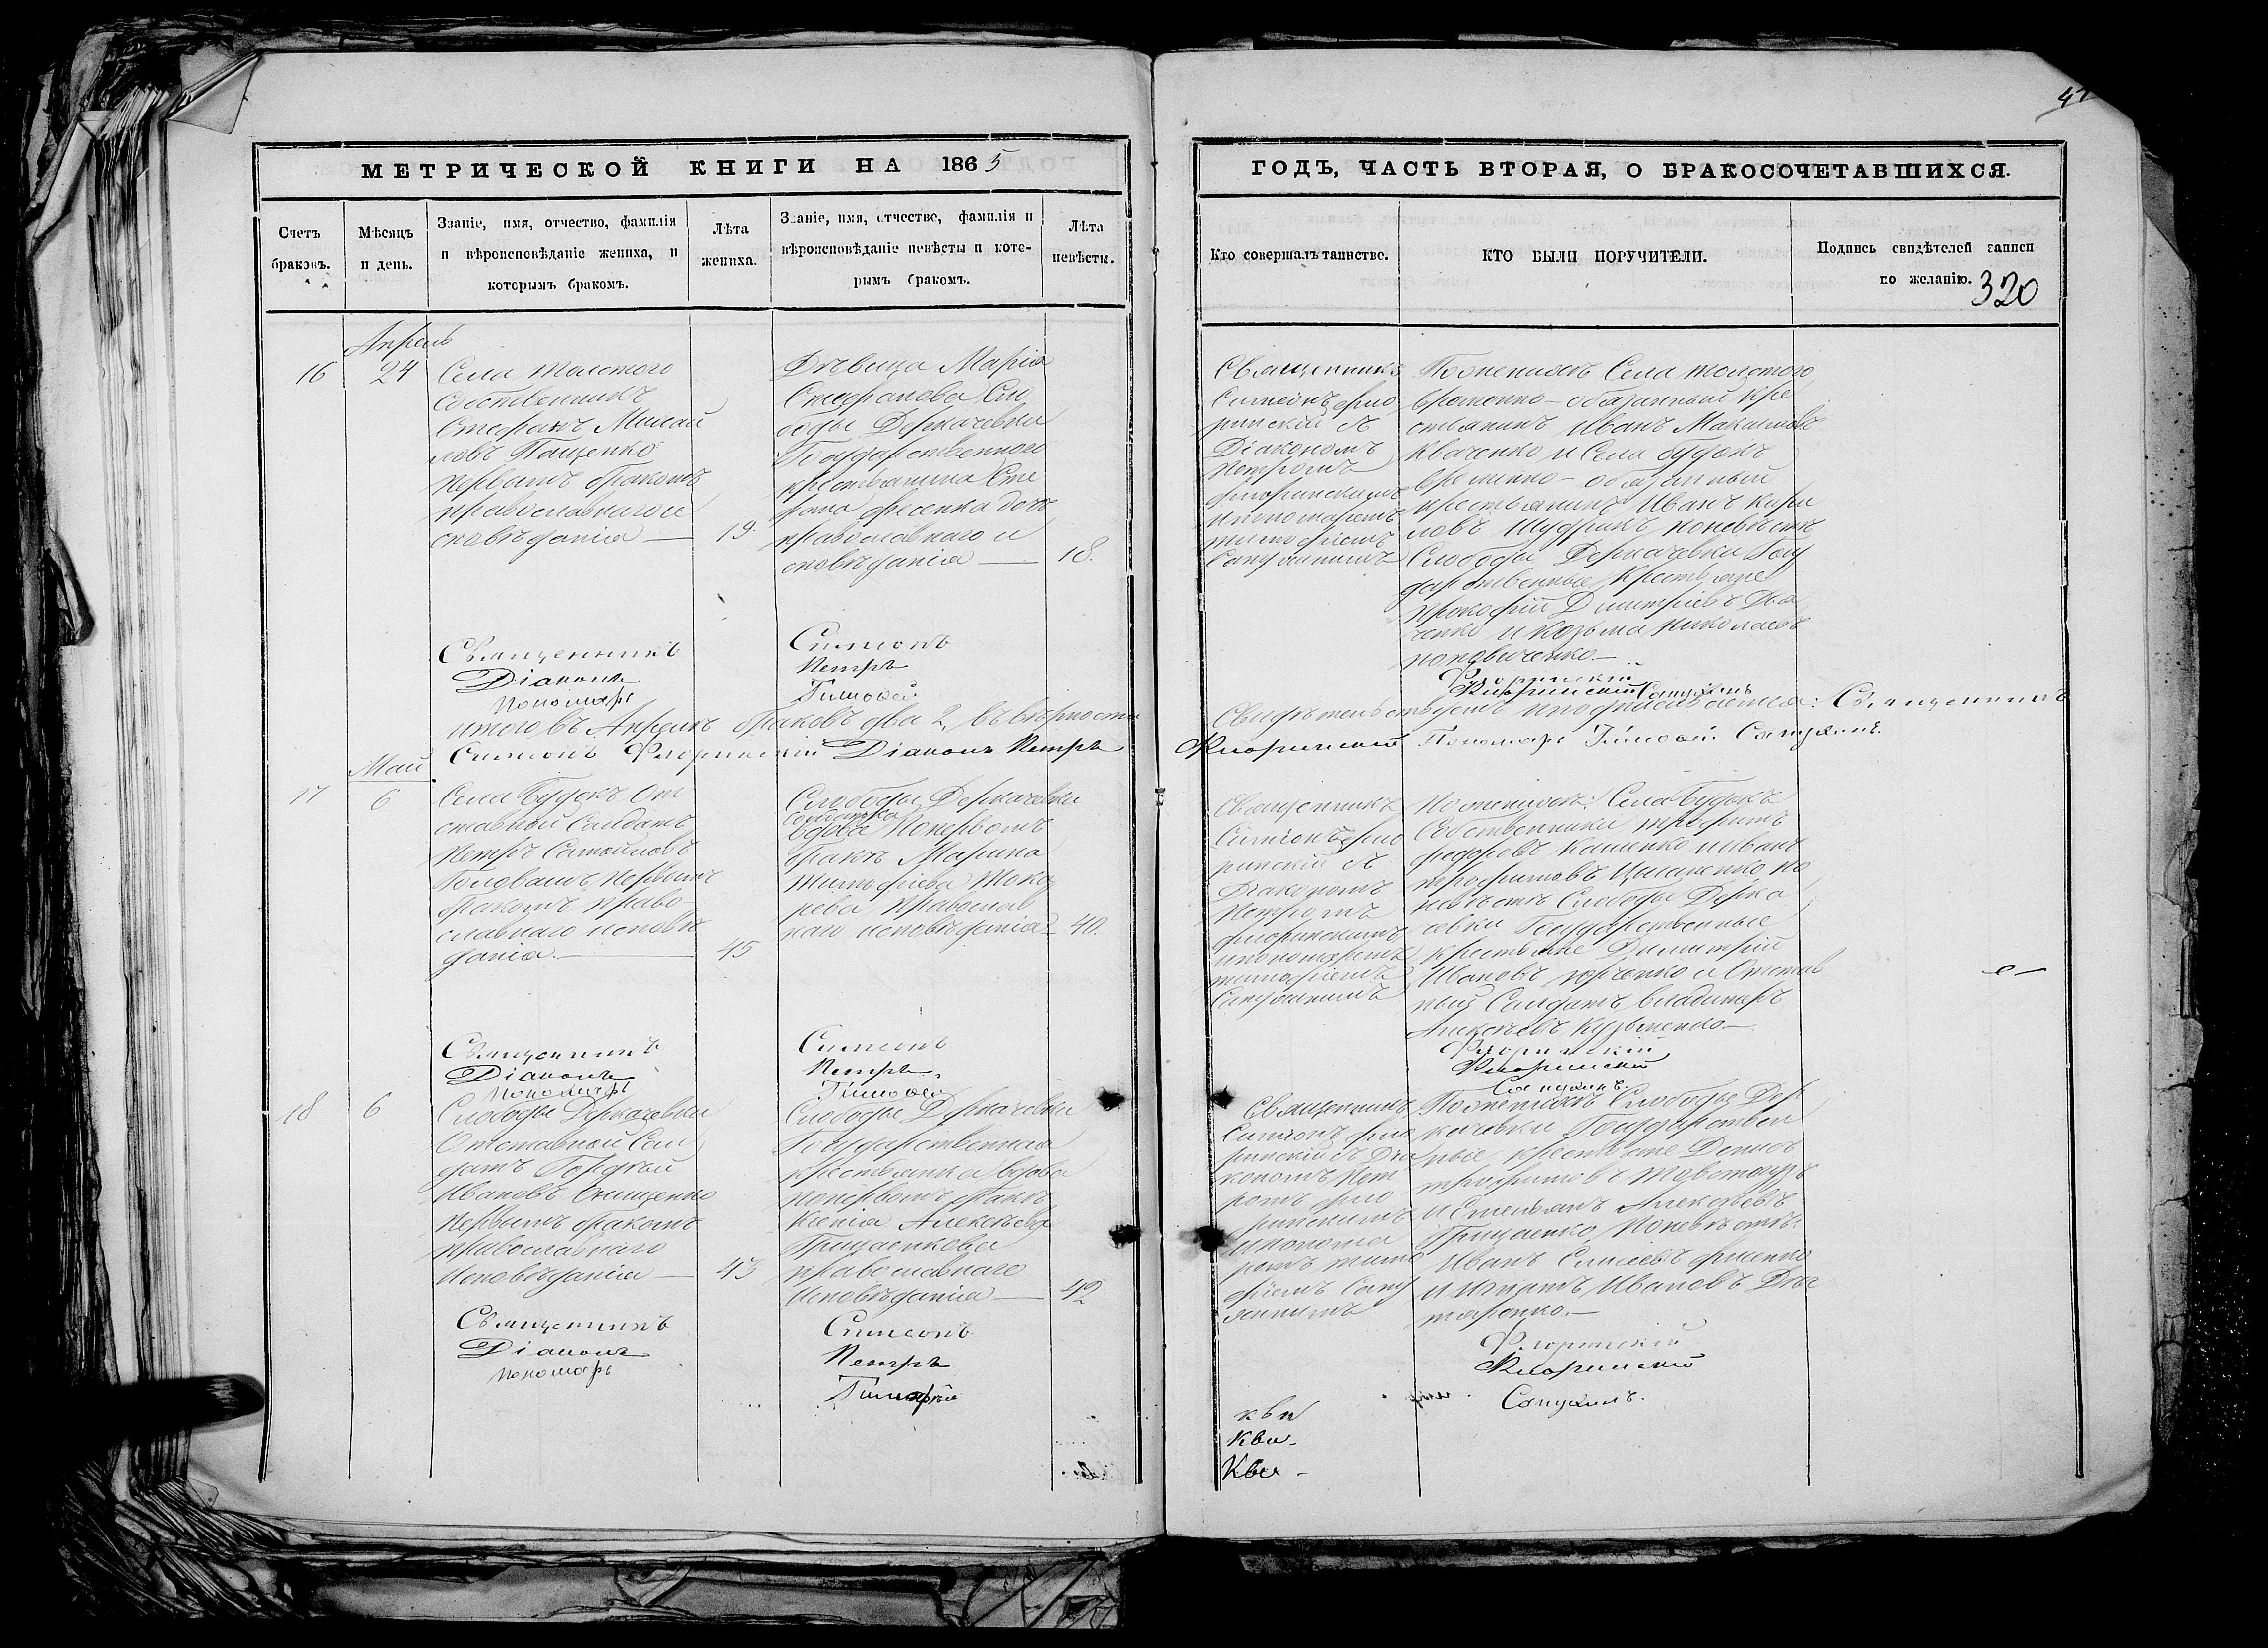 41
МЕТРИЧЕСКОЙ КНИГИ НА 1865
ГОДЪ, ЧАСТЬ ВТОРАЯ, О БРАКОСОЧЕТАВШИХСЯ.
Счетъ браковъ.
Мѣсяцъ и день.
Званіе, имя, отчество, фамилія
и вѣроисповѣданіе жениха, и
которымъ бракомъ.
Лѣта жениха.
Званіе, имя, отчество, фамилія и
вѣроисповѣданіе невѣсты и кото-
рымъ бракомъ.
Лѣта невѣсты.
Кто совершалъ таинство.
КТО БЫЛИ ПОРУЧИТЕЛИ.
Подпись свидѣтелей записи
по желанію.
320
Апрель
16
24
Села Толстого
Собственникъ
Стефанъ Михай
ловъ Пащенко
первымъ бракомъ
православнаго и
сповѣданія —
19.
Дѣвица Марія
Стефанова Сло
боды Деркачевки
Государственного
крестьянина Сте
фана Фесенка дочь
православнаго и
сповѣданія —
18.
Священникъ
Симеонъ Фло
ринскій съ
Діакономъ
Петромъ
Флоринскимъ
и пономаремъ
Тимофіемъ
Сапухинымъ
По женихѣ Села Толстого
временно-обязанный кре
стьянинъ Иванъ Максимовъ
Кваченко и Села Будокъ
временно-обязанный
крестьянинъ Иванъ Кири
ловъ Шудрикъ по невѣстѣ
Слободы Деркачевки Госу
дарственные крестьяне
Прокофій Димитріевъ Дья
ченко и Козьма Николаевъ
Поповиченко —
Священникъ
Діаконъ
Пономарь
Симеонъ
Петръ
Тимофей
Флоринскій
Флоринскій
Сапухинъ
итого въ Апрелѣ браковъ два 2, въ вѣрности
свидѣтельствуемъ и подписываемся: Священникъ
Симеонъ Флоринскій Діаконъ Петръ
Флоринскій Пономарь Тимофей Сапухинъ.
Май
17
6
Села Будокъ От
ставной Солдатъ
Петръ Самойловъ
Головашъ, первымъ
бракомъ право
славнаго исповѣ
данія. —
45
Слободы Деркачевки
солдатка
вдова по первомъ
бракѣ Марина
Тимофіева Тока
рева православ
наго исповѣданія —
40.
Священникъ
Симеонъ Фло
ринскій съ
Діакономъ
Петромъ
Флоринскимъ
и пономаремъ
Тимофіемъ
Сапухинымъ
По женихѣ: Села Будокъ
Собственники Трофимъ
Федоровъ Кашенко и Иванъ
Трофимовъ Цыганенко, по
невѣстѣ Слободы Дерка
чевки Государственные
крестьяне Димитрій
Ивановъ Юрченко и Отстав
ный Солдатъ Владимиръ
Алексѣевъ Кузьменко —
Священникъ
Діаконъ
Пономарь
Симеонъ
Петръ
Тимофей
Флоринскій
Флоринскій
Сапухинъ.
18
6
Слободы Деркачевки
Отставной Сол
датъ Гордѣй
Ивановъ Онищенко
первымъ бракомъ
православнаго
исповѣданія —
43
Слободы Деркачевки
Государственная
крестьянка вдова
по первомъ бракѣ
Ксенія Алексѣева
Грицаенкова
православнаго
исповѣданія —
42
Священникъ
Симеонъ Фло
ринскій съ Діа
кономъ Пет
ромъ Фло
ринскимъ
и понома
ремъ Тимо
фіемъ Сапу
хинымъ
По женихѣ Слободы Дер
качевки Государствен
ные крестьяне Демидъ
Трофимовъ Товстоузъ
и Емельянъ Алексѣевъ
Грицаенко, по невѣстѣ:
Иванъ Елисеевъ Фисенко
и Игнатъ Ивановъ Дег
таренко. —
Священникъ
Діаконъ
Пономарь
Симеонъ
Петръ
Тимофѣй
Флоринскій
Флоринскій
Сапухинъ.